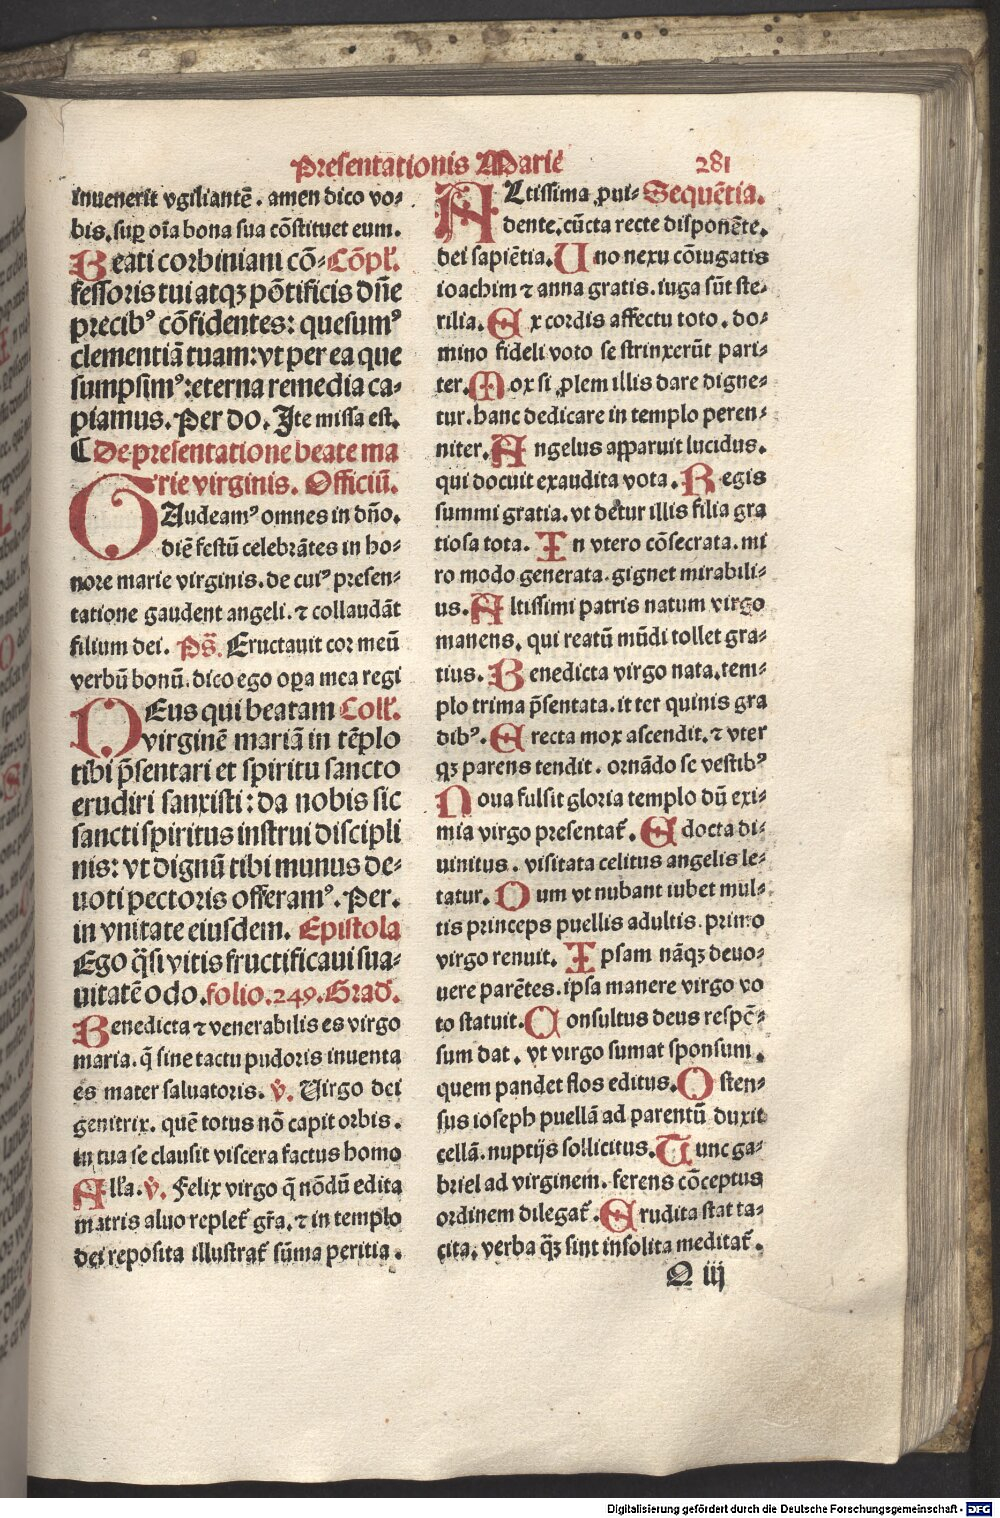 Presentationis Marie
281
inuenerit vgiliantē. amen dico vo-
bis. sup̱ oīa bona sua cōstituet eum.
Beati corbiniani cō- Cōpl'.
fessoris tui atqꝫ pōtificis dn̄e
precib⁹ cōfidentes: quesum⁹
clementiā tuam: vt per ea que
sumpsim⁹: eterna remedia ca-
piamus. Per do. Ite missa est.
¶ De presentatione beate ma
rie virginis. Officiū.
GAudeam⁹ omnes in dn̄o.
diē festū celebrātes in ho-
nore marie virginis. de cui⁹ presen-
tatione gaudent angeli. ⁊ collaudāt
filium dei. Ps̄. Eructauit cor meū
verbū bonū. dico ego op̱a mea regi
DEus qui beatam Coll'.
virginē mariā in tēplo
tibi p̄sentari et spiritu sancto
erudiri sanxisti: da nobis sic
sancti spiritus instrui discipli
nis: vt dignū tibi munus de-
uoti pectoris offeram⁹. Per.
in vnitate eiusdem. Epistola
Ego q̄si vitis fructificaui sua-
uitatē odo. folio. 249. Grad'.
Benedicta ⁊ venerabilis es virgo
maria. q̄ sine tactu pudoris inuenta
es mater saluatoris. v̄. Uirgo dei
genitrix. quē totus nō capit orbis.
in tua se clausit viscera factus homo
All'a. v̄. Felix virgo q̄ nōdū edita
matris aluo replet' gr̄a. ⁊ in templo
dei reposita illustrat' sūma peritia.
ALtissima ꝓui- Sequētia.
dente. cūcta recte disponēte.
dei sapiētia. Uno nexu cōiugatis
ioachim ⁊ anna gratis. iuga sūt ste-
rilia. Ex cordis affectu toto. do-
mino fideli voto se strinxerūt pari-
ter. Mox si ꝓlem illis dare digne-
tur. hanc dedicare in templo peren-
niter. Angelus apparuit lucidus.
qui docuit exaudita vota. Regis
summi gratia. vt detur illis filia gra
tiosa tota. In vtero cōsecrata. mi
ro modo generata. gignet mirabili-
us. Altissimi patris natum virgo
manens. qui reatū mūdi tollet gra-
tius. Benedicta virgo nata. tem-
plo trima p̄sentata. it ter quinis gra
dib⁹. Erecta mox ascendit. ⁊ vter
qꝫ parens tendit. ornādo se vestib⁹
Noua fulsit gloria templo dū exi-
mia virgo presentat'. Edocta di-
uinitus. visitata celitus angelis le-
tatur. Dum vt nubant iubet mul-
tis princeps puellis adultis. primo
virgo renuit. Ipsam nāqꝫ deuo-
uere parētes. ipsa manere virgo vo
to statuit. Consultus deus respō-
sum dat. vt virgo sumat sponsum.
quem pandet flos editus. Osten-
sus ioseph puellā ad parentū duxit
cellā. nuptijs sollicitus. Tunc ga-
briel ad virginem. ferens cōceptus
ordinem dilegat'. Erudita stat ta-
cita. verba q̄ꝫ sint insolita meditat'.
Q iij
Digitalisierung gefördert durch die Deutsche Forschungsgemeinschaft - DFG